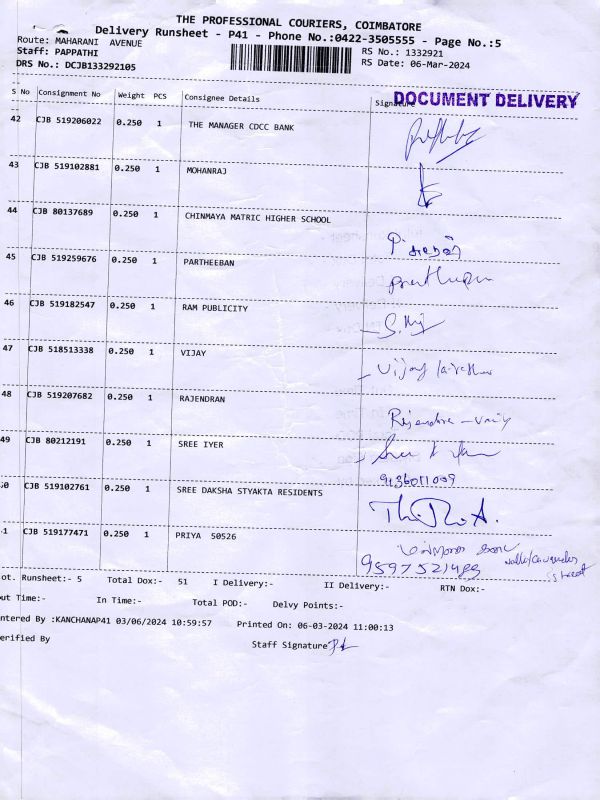 THE PROFESSIONAL COURIERS, COIMBATORE
Delivery Runsheet - P41 - Phone No.:0422-3505555 - Page No.:5
Route: MAHARANI AVENUE
Staff: PAPPATHI
RS No.: 1332921
DRS No.: DCJB133292105
RS Date: 06-Mar-2024
S No Consignment No Weight PCS Consignee Details Signature
DOCUMENT DELIVERY
42 CJB 519206022 0.250 1 THE MANAGER CDCC BANK
43 CJB 519102881 0.250 1 MOHANRAJ
44 CJB 80137689 0.250 1 CHINMAYA MATRIC HIGHER SCHOOL
45 CJB 519259676 0.250 1 PARTHEEBAN
46 CJB 519182547 0.250 1 RAM PUBLICITY
47 CJB 518513338 0.250 1 VIJAY Vijay
48 CJB 519207682 0.250 1 RAJENDRAN
49 CJB 80212191 0.250 1 SREE IYER
9436011009
50 CJB 519102761 0.250 1 SREE DAKSHA STYAKTA RESIDENTS
1 CJB 519177471 0.250 1 PRIYA 50526
9597521483
street
ot. Runsheet:- 5 Total Dox:- 51 I Delivery:- II Delivery:- RTN Dox:-
ut Time:- In Time:- Total POD:- Delvy Points:-
ntered By :KANCHANAP41 03/06/2024 10:59:57 Printed On: 06-03-2024 11:00:13
erified By Staff Signature